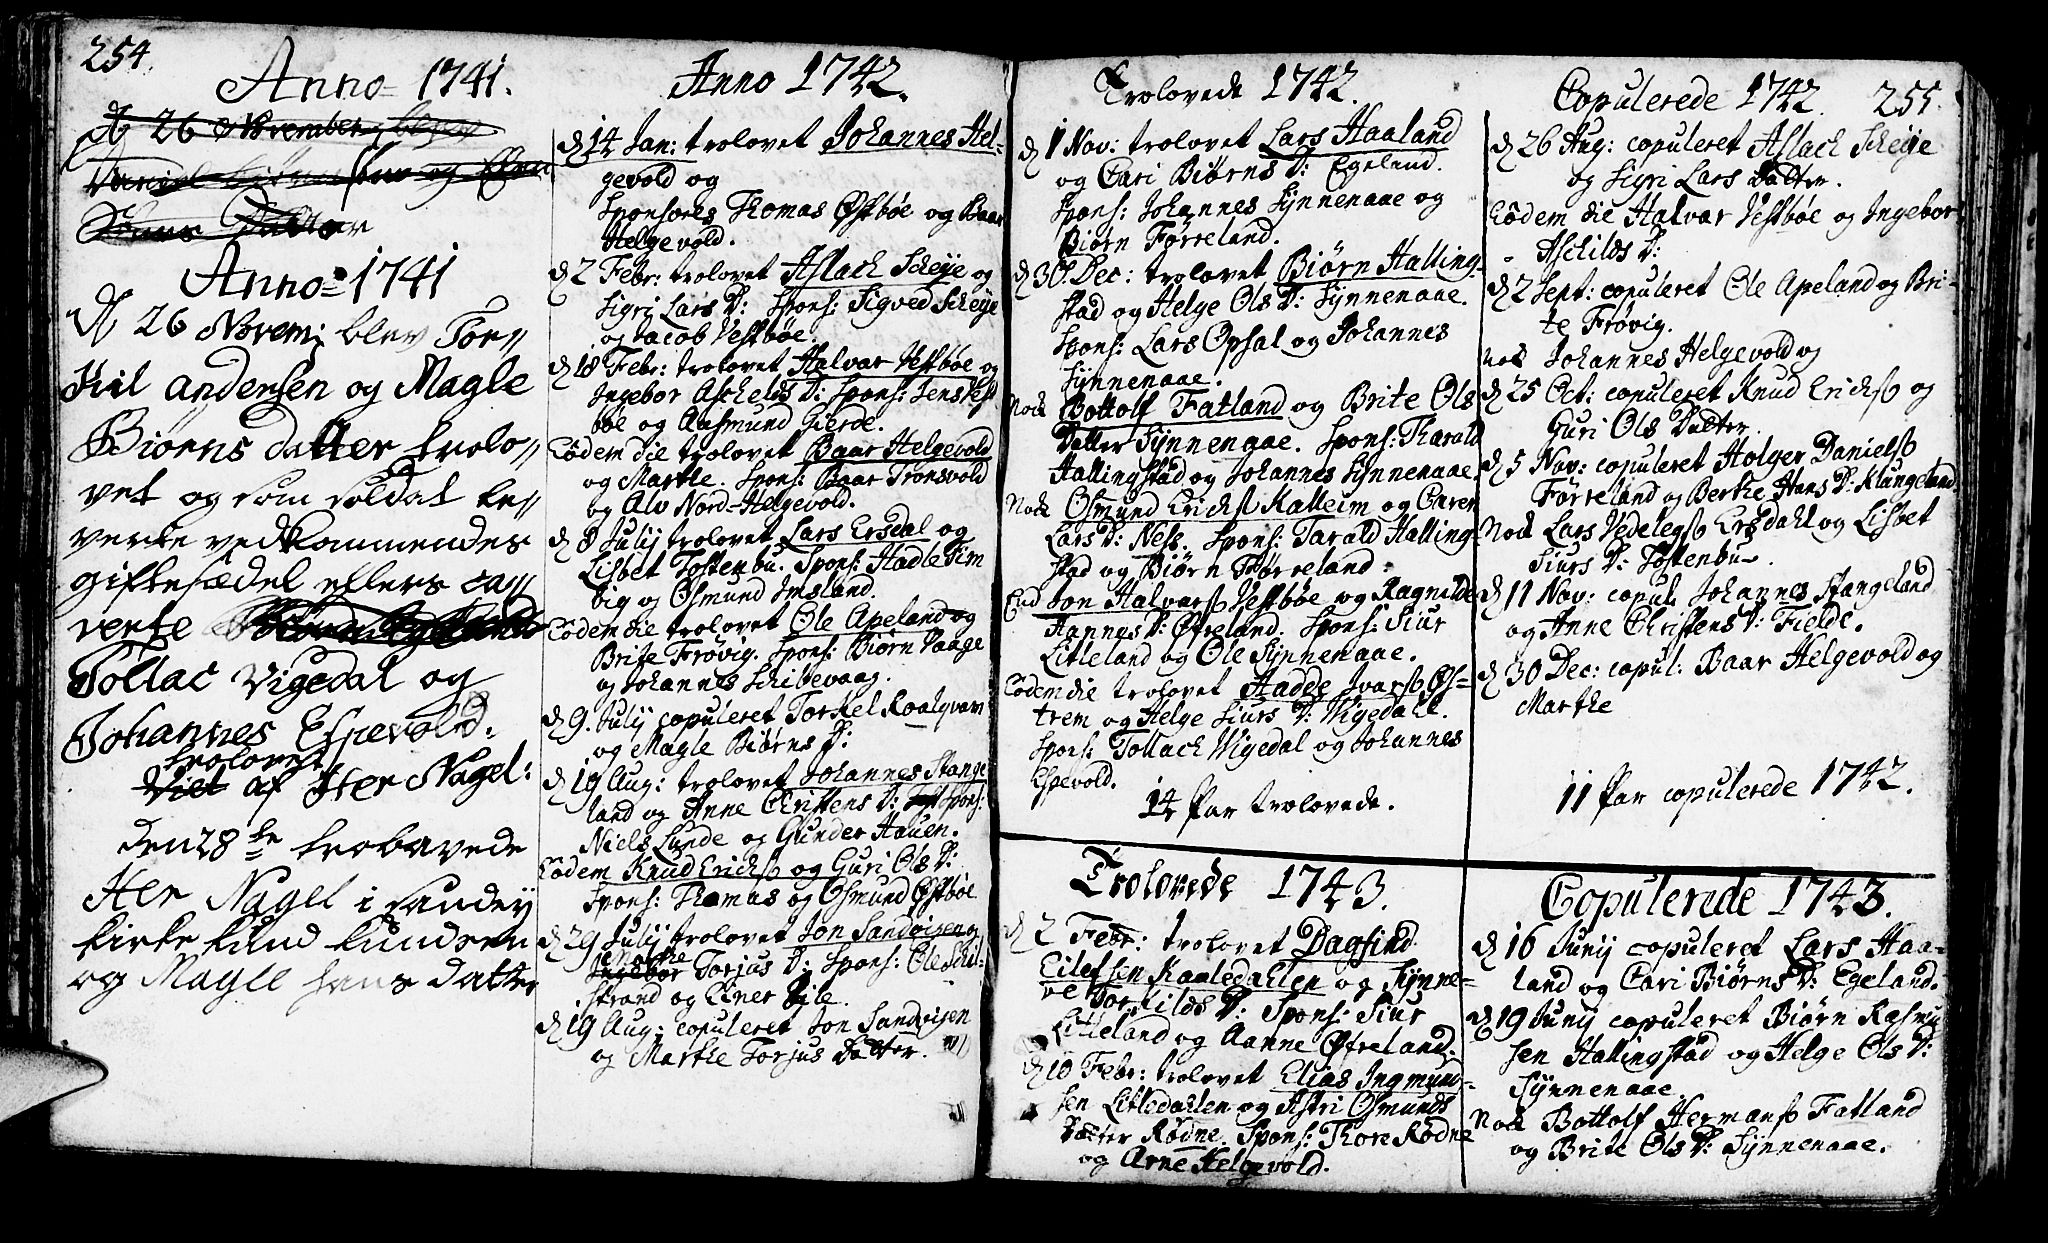 254.
Anno 1741.
d 26 November blev
Daniel Biörnsen og Elen
Datter
Anno 1741
d 26 Novem: blev Tor//
Kil andersen og Magle
Biørns datter trolo//
vet og som soldat le//
verte vedkommendes
giftesædel ellers ca//
verte
Tollac Vigedal og
Johannes Espevold.
trolovet
Viet af Her Nagel:
den 28 te trolavede
Her Nagel i sandeÿ
kirke knud knudsen
og Magle hans datter
Anno 1742.
d 14 Jan: trolovet Johannes Hel-
gevold og
Sponsores Thomas Østbøe og Baar
Helgevold.
d 2 Febr: trolovet Aslach Scheÿe og
Sigri Lars D: Spons: Sigved Scheÿe
og Jacob Vestbøe.
d 18 Febr: trolovet Halvar Vestbøe og
Ingebor Aschilds D: Spons: Jens Vest
bøe og Aasmund Gierde.
Eodem die trolovet Baar Helgevold
og Marthe. Spons: Baar Tronsvold
og Alv Nord-Helgevold.
d 8 Julÿ trolovet Lars Ersdal og
Lisbet Tostenbu. Spons: Hadle Tim
big og Osmund Imsland.
Eodem die trolovet Ole Apeland og
Brite Frøvig. Spons: Biørn Vaage
og Johannes Schibevaag.
d 9. Julÿ copuleret Torkel Roalqvam
og Magle Biørns D:
d 19 Aug: trolovet Johannes Stange
land og Anne Christens D: Spons:
Niels Lunde og Gunder Hauen.
Eodem Knud Erichs⁠ß og Guri Ols D:
Spons: Thomas og Osmund Østbøe
d 29 Julÿ trolovet Jon Sandvigen og
Marthe
Ingebor Torjus D: Spons: Ole Schil-
strand og Einer Øÿe.
d 19 Aug: copuleret Jon Sandvigen
og Marthe Torjus Datter.
Trolovede 1742.
d 1 Nov: trolovet Lars Haaland
og Cari Biørns D: Egeland.
Spons: Johannes Sÿnnenaae og
Biørn Førreland.
d 30. Dec: trolovet Biørn Halling-
stad og Helge Ols D: Sÿnnenaae.
Spons: Lars Opsal og Johannes
Sÿnnenaae.
Nock Bottolf Fatland og Brite Ols
Datter Sÿnnenaae. Spons: Tharald
Hallingstad og Johannes Sÿnnenaae.
Nock Osmund Erichsß Kalleim og Caren
Lars D: Ness. Spons: Tarald Halling-
stad og Biørn Førreland.
End Jon Halvarsß Vestbøe og Ragnilde
Hannes D: Øfreland. Spons: Siur
Litleland og Ole Sÿnnenaae.
Eodem die trolovet Hadde Ivarsß Øs-
trem og Helge Siurs D: Wigedahl.
Spons: Tollach Wigedal og Johannes
Espevold.
14 Par trolovede.
Trolovede 1743.
d 2 Febr: trolovet Dagfind
Eilefsen Kaaledahlen og Sÿnne-
ve Torkilds D: Spons: Siur
Litleland og Aanne Øfreland.
d 10 Febr: trolovet Elias Ingmund-
sen Litledahlen og Astri Osmunds
Datter Rødne. Spons: Thore Rødne
og Arne Helgevold.
Copulerede 1742. 255.
d 26 Aug: copuleret Aslach Scheÿe
og Sigri Lars Datter.
Eodem die Halvar Vestbøe og Ingebor
Aschilds D:
d 2 Sept: copuleret Ole Apeland og Bri-
te Frøvig.
Nock Johannes Helgevold og
d 25 Oct: copuleret Knud Erichsß og
Guri Ols Datter.
d 5 Nov: copuleret Holger Danielsß
Førreland og Berthe Hans D: Klungeland.
Nock Lars Vedelegsß Ersdahl og Lisbet
Siurs D: Tostenbu.
d 11 Nov: copul. Johannes Stangeland
og Anne Christens D: Fielde.
d 30 Dec: copul: Baar Helgevold og
Marthe
11 Par copulerede 1742.
Copulerede 1743.
d 16 Junÿ copuleret Lars Haa-
land og Cari Biørns D: Egeland.
d 19 Junÿ copuleret Biørn Rasmu
sen Hallingstad og Helge Ols D:
Sÿnnenaae.
Nock Bottolf Hermansß Fatland
og Brite Ols D: Sÿnnenaae.